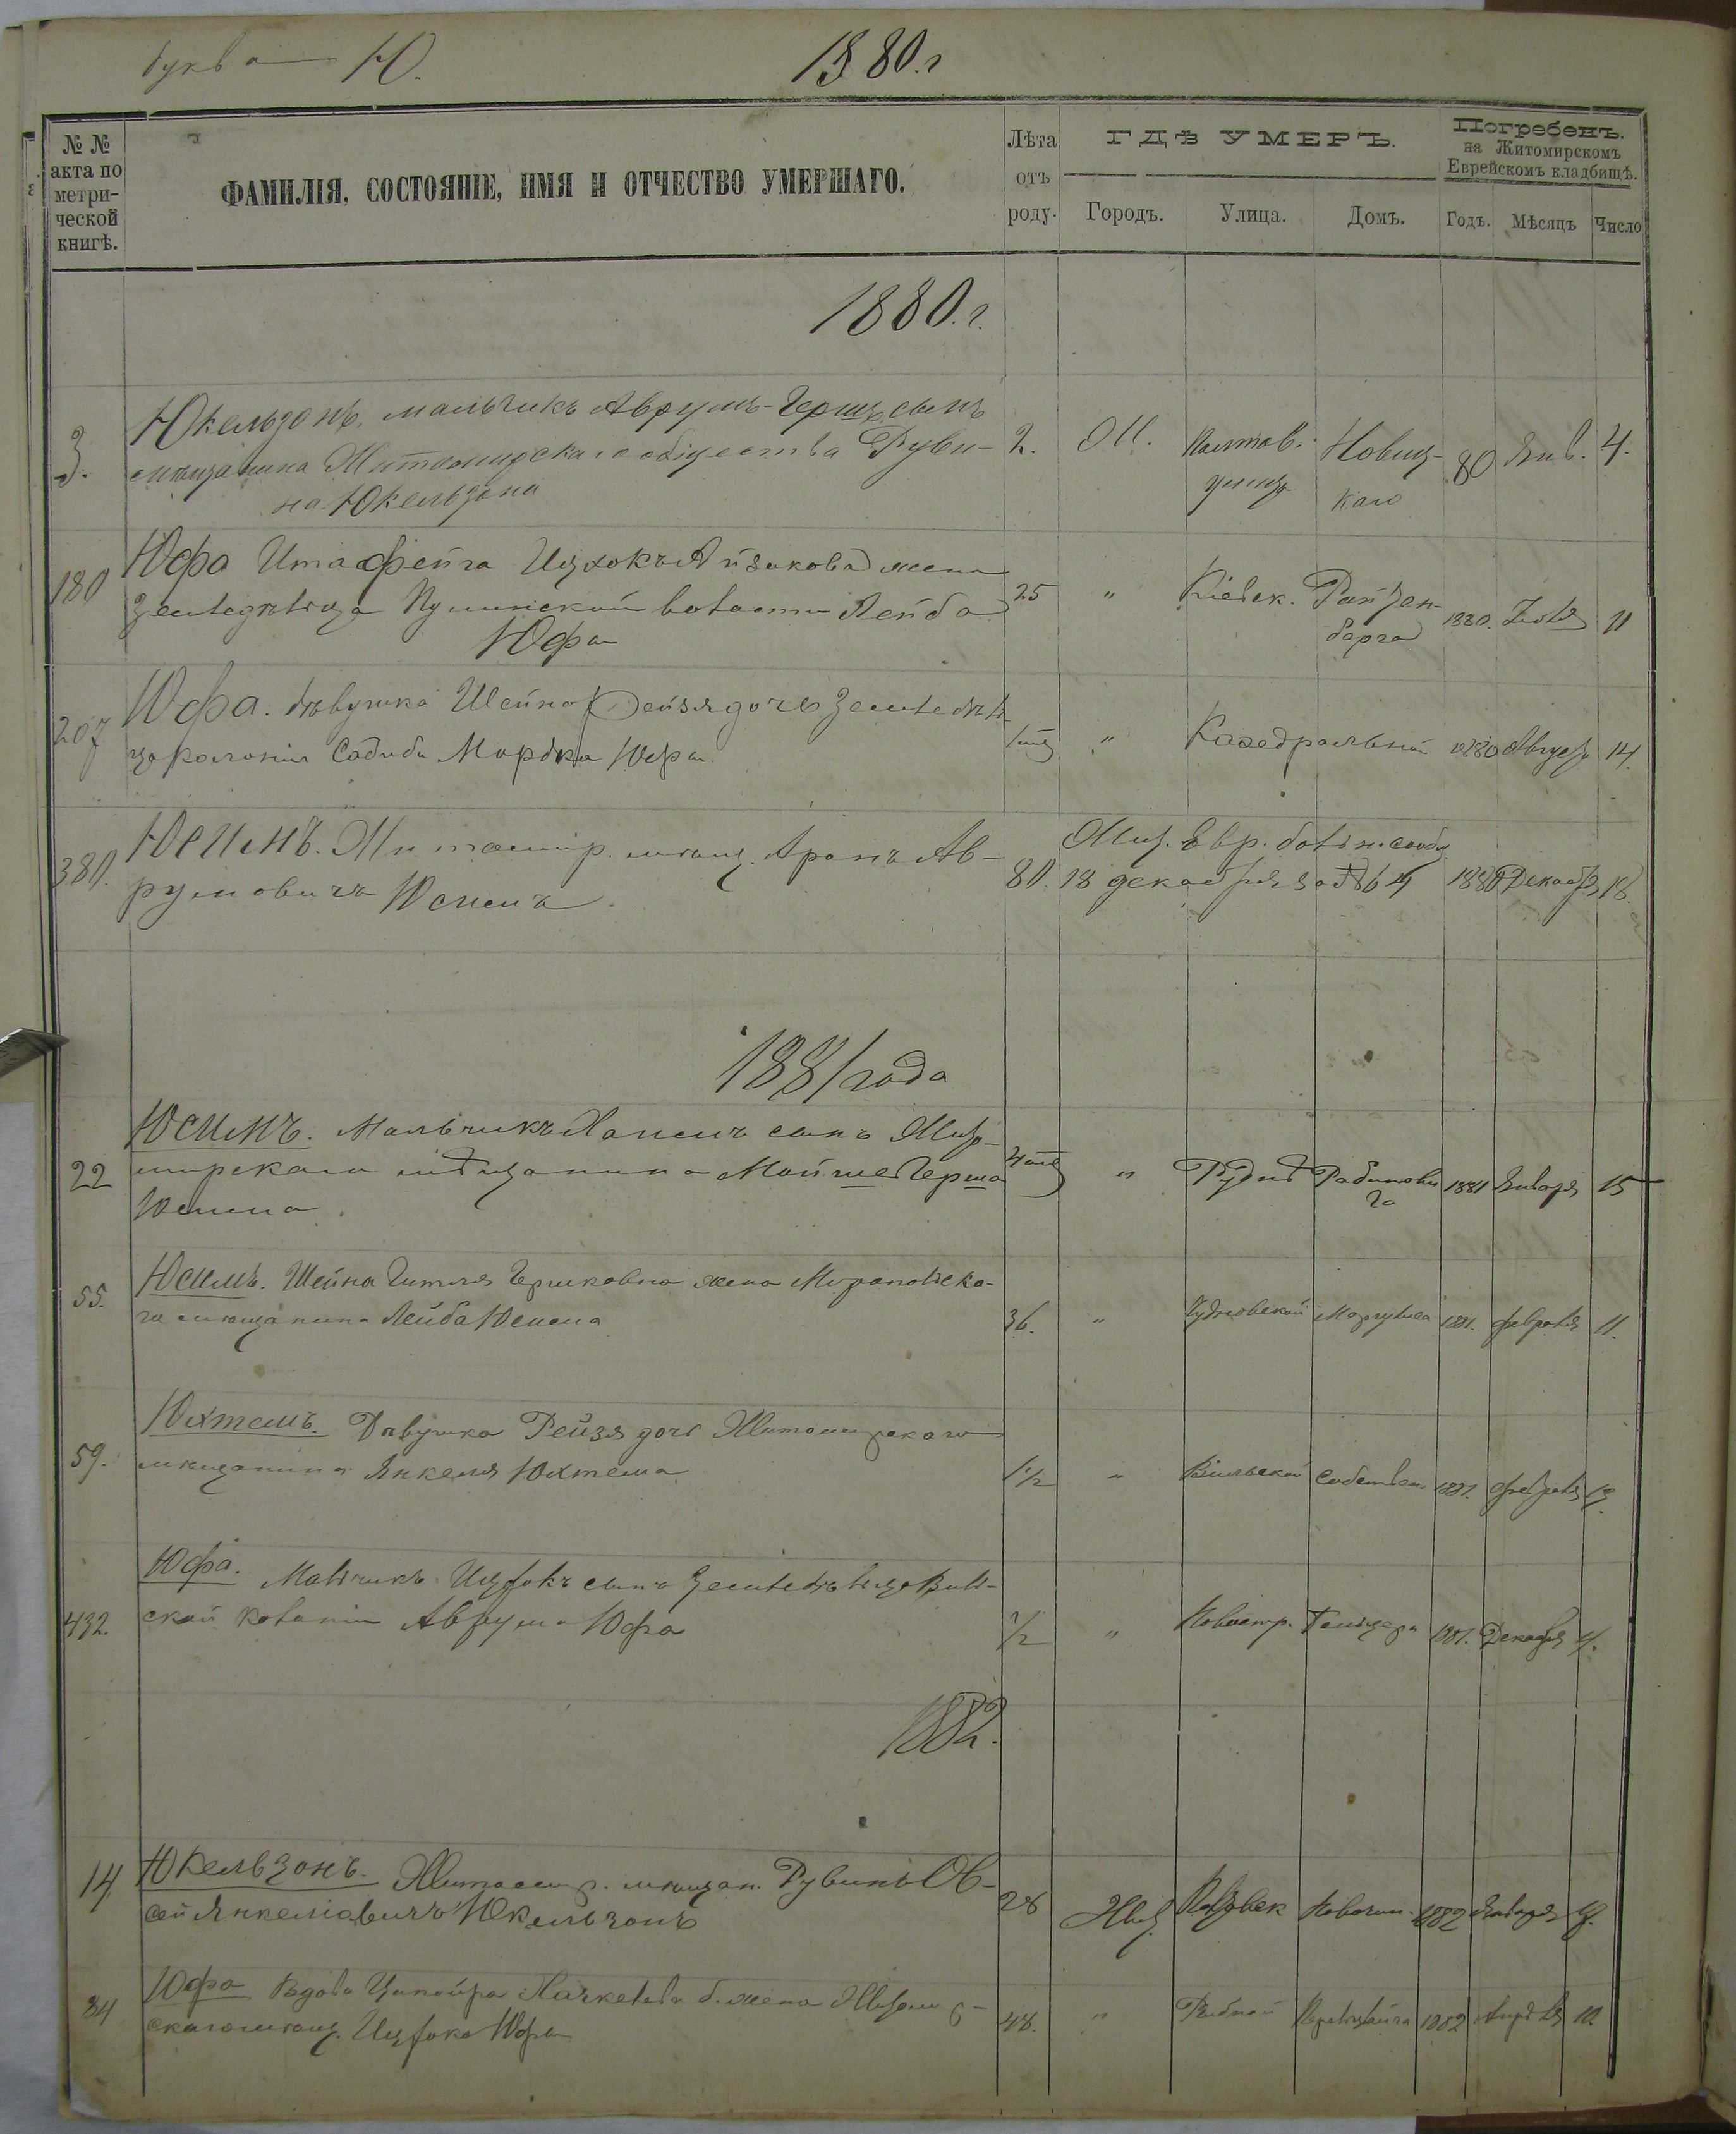 буква Ю.
1880.г
№ №
акта по
метри-
ческой
книгѣ.
ФАМИЛІЯ, СОСТОЯНІЕ, ИМЯ И ОТЧЕСТВО УМЕРШАГО.
Лѣта
отъ
роду.
ГДѢ УМЕРЪ.
Городъ.
Улица.
Домъ.
Погребенъ.
на Житомирскомъ
Еврейскомъ кладбищѣ.
Годъ.
Мѣсяцъ
Число
1880.г.
3.
Юкельзонъ, мальчикъ Аврумъ-Гершъ, сынъ
мѣщанина Житомирскаго общества Руви-
на Юкельзона
2.
Новиц-
каго
80
Янв.
4.
180
Юфа Ита Фейга Ицхокъ Айзикова жена
земледѣльца Пулинской волости Лейба
Юфа
25
"
Кіевск.
Райзен-
берга
1880.
Іюля
11
207
Юфа. дѣвушка Шейна Рейзя дочь земледѣль
ца колоніи Мордка Юфы
"
Кафедральной
1880
Августа
14.
380.
Юсимъ. Житомір. мѣщ. Аронъ Ав-
румовичъ Юсимъ.
80.
Жит. Евр. больн. сообщ.
18 декабря за № 64
1880
Декабря
18.
1881 года
22
Юсимъ. Мальчикъ сынъ Жито-
мирскаго мѣщанина Мойше Герша
Юсима.
"
Рудня
Рабинови
ча
1881
Января
15
55.
Юсимъ. Шейна Гитля Гершковна жена
го мѣщанина Лейба Юсима
36.
"
Чудновской
Маргулиса
1881.
февраля
11.
59.
Юхтемъ. Дѣвушка Рейзя дочь Житомирскаго
мѣщанина Янкеля Юхтема
1½
"
Вильской
собствен.
1881.
февраля
432.
Юфа. Мальчикъ Ицхокъ сынъ земледѣльца Виль-
ской колоніи Аврума Юфа
½
"
1881.
Декабря
4.
1882.
14
Юкельзонъ. Житомир. мѣщан. Рувинъ Ов-
сей Янкелiовичъ Юкельзонъ
28
Жит.
1882
Января
84
Юфа Вдова Ципойра б. жена Житомир-
скаго мѣщ. Ицхока Юфы
48.
"
Рыбной
1882
Апрѣля
10.